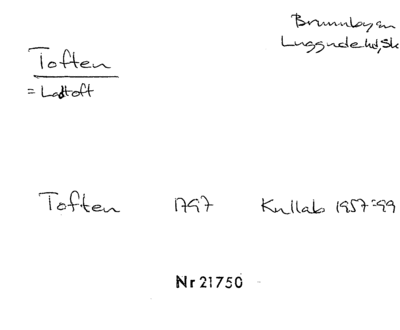 Brunnby sn
Luggude hd, Sk
Toften
= Ladtoft
Toften 1797 Kullab 1957:99
Nr 21750